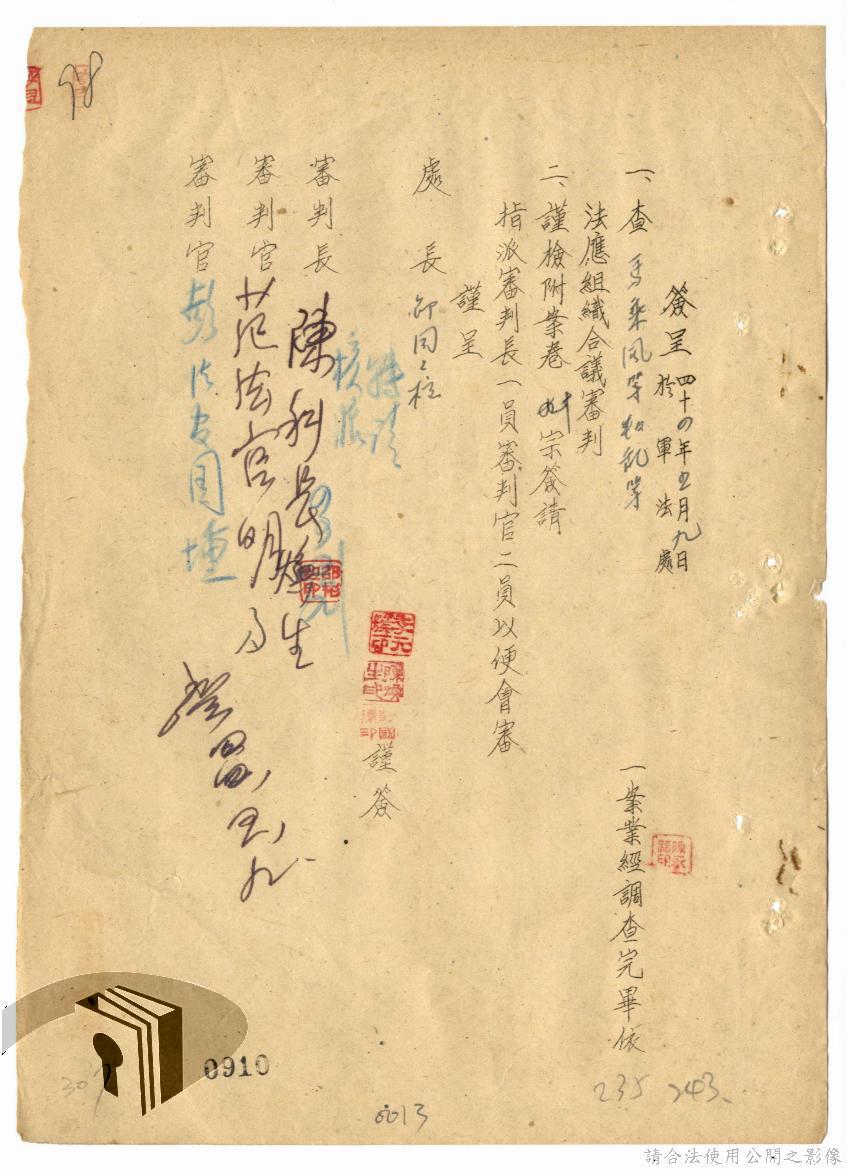 簽呈 四十四年五月九日
於軍法處
一、查 馬乘風等叛亂等 一案業經調查完畢依
法應組織合議審判
二、謹檢附案卷 宗簽請
指派審判長一員審判官二員以便會審
謹呈
處 長 邵
謹簽
審判長 陳科長煥生
審判官 范法官明
審判官 彭法官國壎
核派
98
0910
0013
235 243
307
請合法使用公開之影像